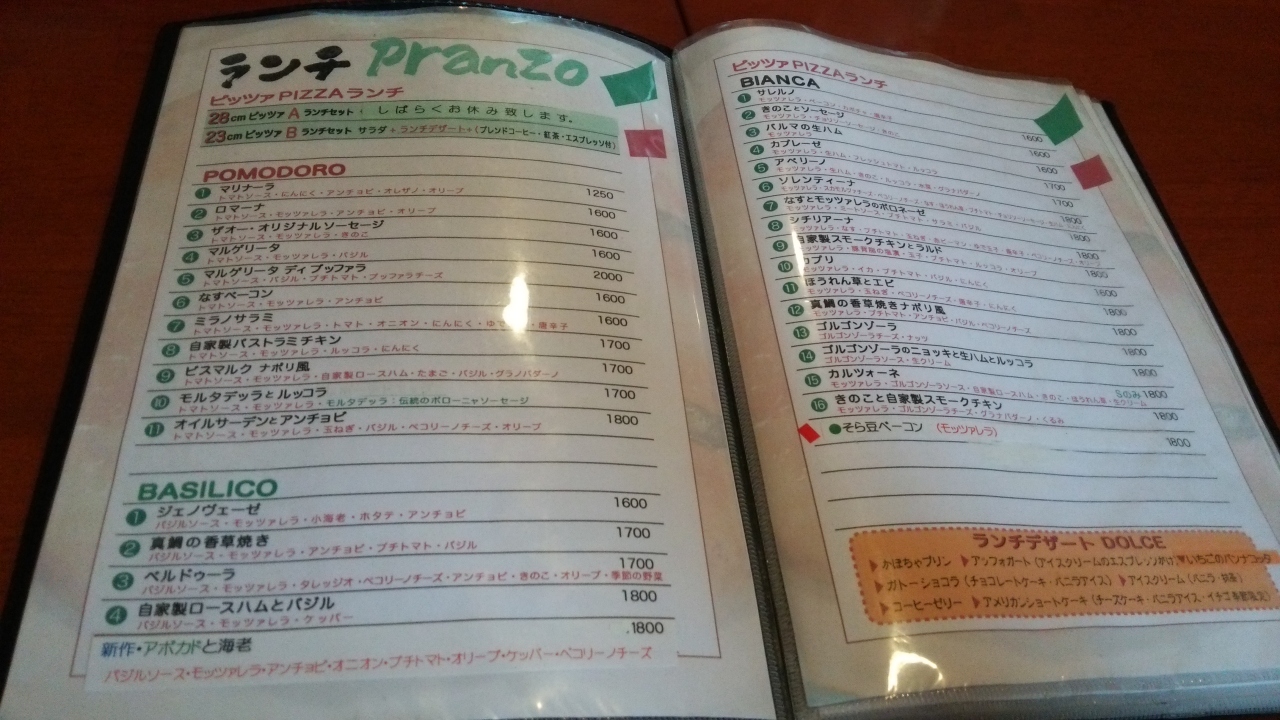 ランチ Pranzo
ピッツァPIZZAランチ
28cm ピッツァ A ランチセット : しばらくお休み致します。
23cm ピッツァ B ランチセット サラダ+ランチデザート+(ブレンドコーヒー・紅茶・エスプレッソ付)
POMODORO
1 マリナーラ 1250
トマトソース・にんにく・アンチョビ・オレガノ・オリーブ
2 ロマーナ 1600
トマトソース・モッツァレラ・アンチョビ・オリーブ
3 ザオー・オリジナルソーセージ 1600
トマトソース・モッツァレラ・きのこ
4 マルゲリータ 1600
トマトソース・モッツァレラ・バジル
5 マルゲリータ ディ ブッファラ 2000
トマトソース・バジル・プチトマト・ブッファラチーズ
6 なすベーコン 1600
トマトソース・モッツァレラ・アンチョビ
7 ミラノサラミ 1600
トマトソース・モッツァレラ・トマト・オニオン・にんにく・ゆで・唐辛子
8 自家製パストラミチキン 1700
トマトソース・モッツァレラ・ルッコラ・にんにく
9 ビスマルク ナポリ風 1700
トマトソース・モッツァレラ・自家製ロースハム・たまご・バジル・グラノパダーノ
10 モルタデッラとルッコラ 1700
トマトソース・モッツァレラ・モルタデッラ:伝統のボローニャソーセージ
11 オイルサーデンとアンチョビ 1800
トマトソース・モッツァレラ・玉ねぎ・バジル・ペコリーノチーズ・オリーブ
BASILICO
1 ジェノヴェーゼ 1600
バジルソース・モッツァレラ・小海老・ホタテ・アンチョビ
2 真鯛の香草焼き 1700
バジルソース・モッツァレラ・アンチョビ・プチトマト・バジル
3 ベルドゥーラ 1700
バジルソース・モッツァレラ・タレッジオ・ペコリーノチーズ・アンチョビ・きのこ・オリーブ・季節の野菜
4 自家製ロースハムとバジル 1800
バジルソース・モッツァレラ・ケッパー
新作・アボカドと海老 1800
バジルソース・モッツァレラ・アンチョビ・オニオン・プチトマト・オリーブ・ケッパー・ペコリーノチーズ
ピッツァPIZZAランチ
BIANCA
1 サレルノ
2 きのことソーセージ 1600
3 パルマの生ハム 1600
モッツァレラ
4 カプレーゼ 1600
モッツァレラ・生ハム・フレッシュトマト・ルッコラ
5 アベリーノ 1700
6 ソレンティーナ 1700
7 なすとモッツァレラのボロネーゼ 1800
モッツァレラ・ミートソース・プチトマト・サラミ・バジル
8 シチリアーナ 1800
9 自家製スモークチキンとラルド 1800
10 カプリ 1800
モッツァレラ・イカ・プチトマト・バジル・にんにく
11 ほうれん草とエビ 1600
モッツァレラ・玉ねぎ・ペコリーノチーズ・唐辛子・にんにく
12 真鯛の香草焼きナポリ風 1800
モッツァレラ・プチトマト・アンチョビ・バジル・ペコリーノチーズ
13 ゴルゴンゾーラ 1800
ゴルゴンゾーラチーズ・ナッツ
14 ゴルゴンゾーラのニョッキと生ハムとルッコラ 1800
ゴルゴンゾーラソース・生クリーム
15 カルツォーネ Sのみ 1800
モッツァレラ・ゴルゴンゾーラソース・自家製ロースハム・きのこ・ほうれん草・生クリーム
16 きのこと自家製スモークチキン 1800
モッツァレラ・ゴルゴンゾーラチーズ・グラナパダーノ・くるみ
●そら豆ベーコン (モッツァレラ) 1800
ランチデザート DOLCE
▶かぼちゃプリン ▶アッフォガート (アイスクリームのエスプレッソがけ) ♥いちごのパンナコッタ
▶ガトーショコラ (チョコレートケーキ・バニラアイス) ▶アイスクリーム (バニラ・抹茶)
▶コーヒーゼリー ▶アメリカンショートケーキ (チーズケーキ・バニラアイス・イチゴ